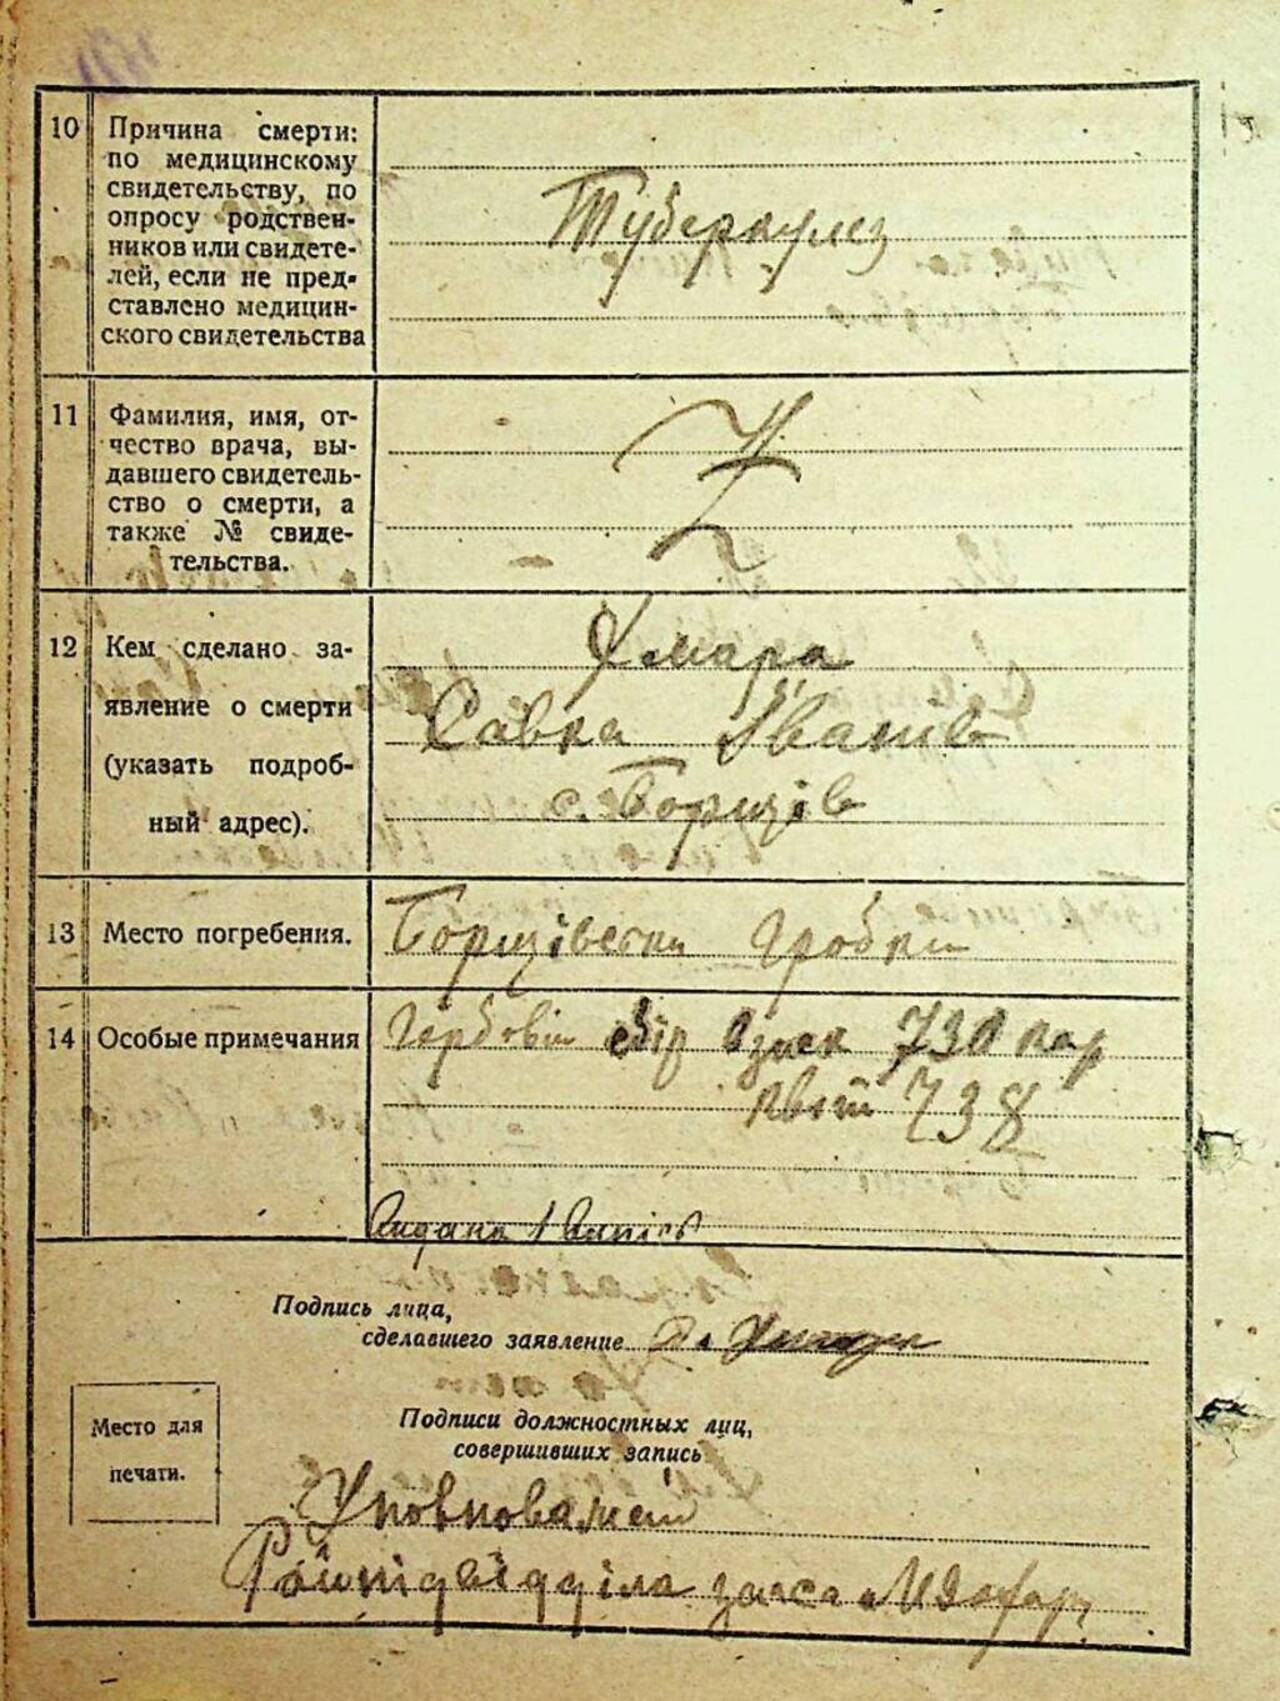 10 Причина смерти:
по медицинскому
свидетельству, по
опросу родствен-
ников или свидете-
лей, если не пред-
ставлено медицин-
ского свидетельства
Туберкулез
11 Фамилия, имя, от-
чество врача, вы-
давшего свидетель-
ство о смерти, а
также № свиде-
тельства.
Z
12 Кем сделано за-
явление о смерти
(указать подроб-
ный адрес).
Хмара
Савка Іванів
с. Борщів
13 Место погребения.
Борщівски гробки
14 Особые примечания
Гербовий сбір взиск 730 кар
квит 738
Підпись лица,
сделавшего заявление
Место для
печати.
Подписи должностных лиц,
совершивших запись
Уповноважений
Райпідвідділа загса